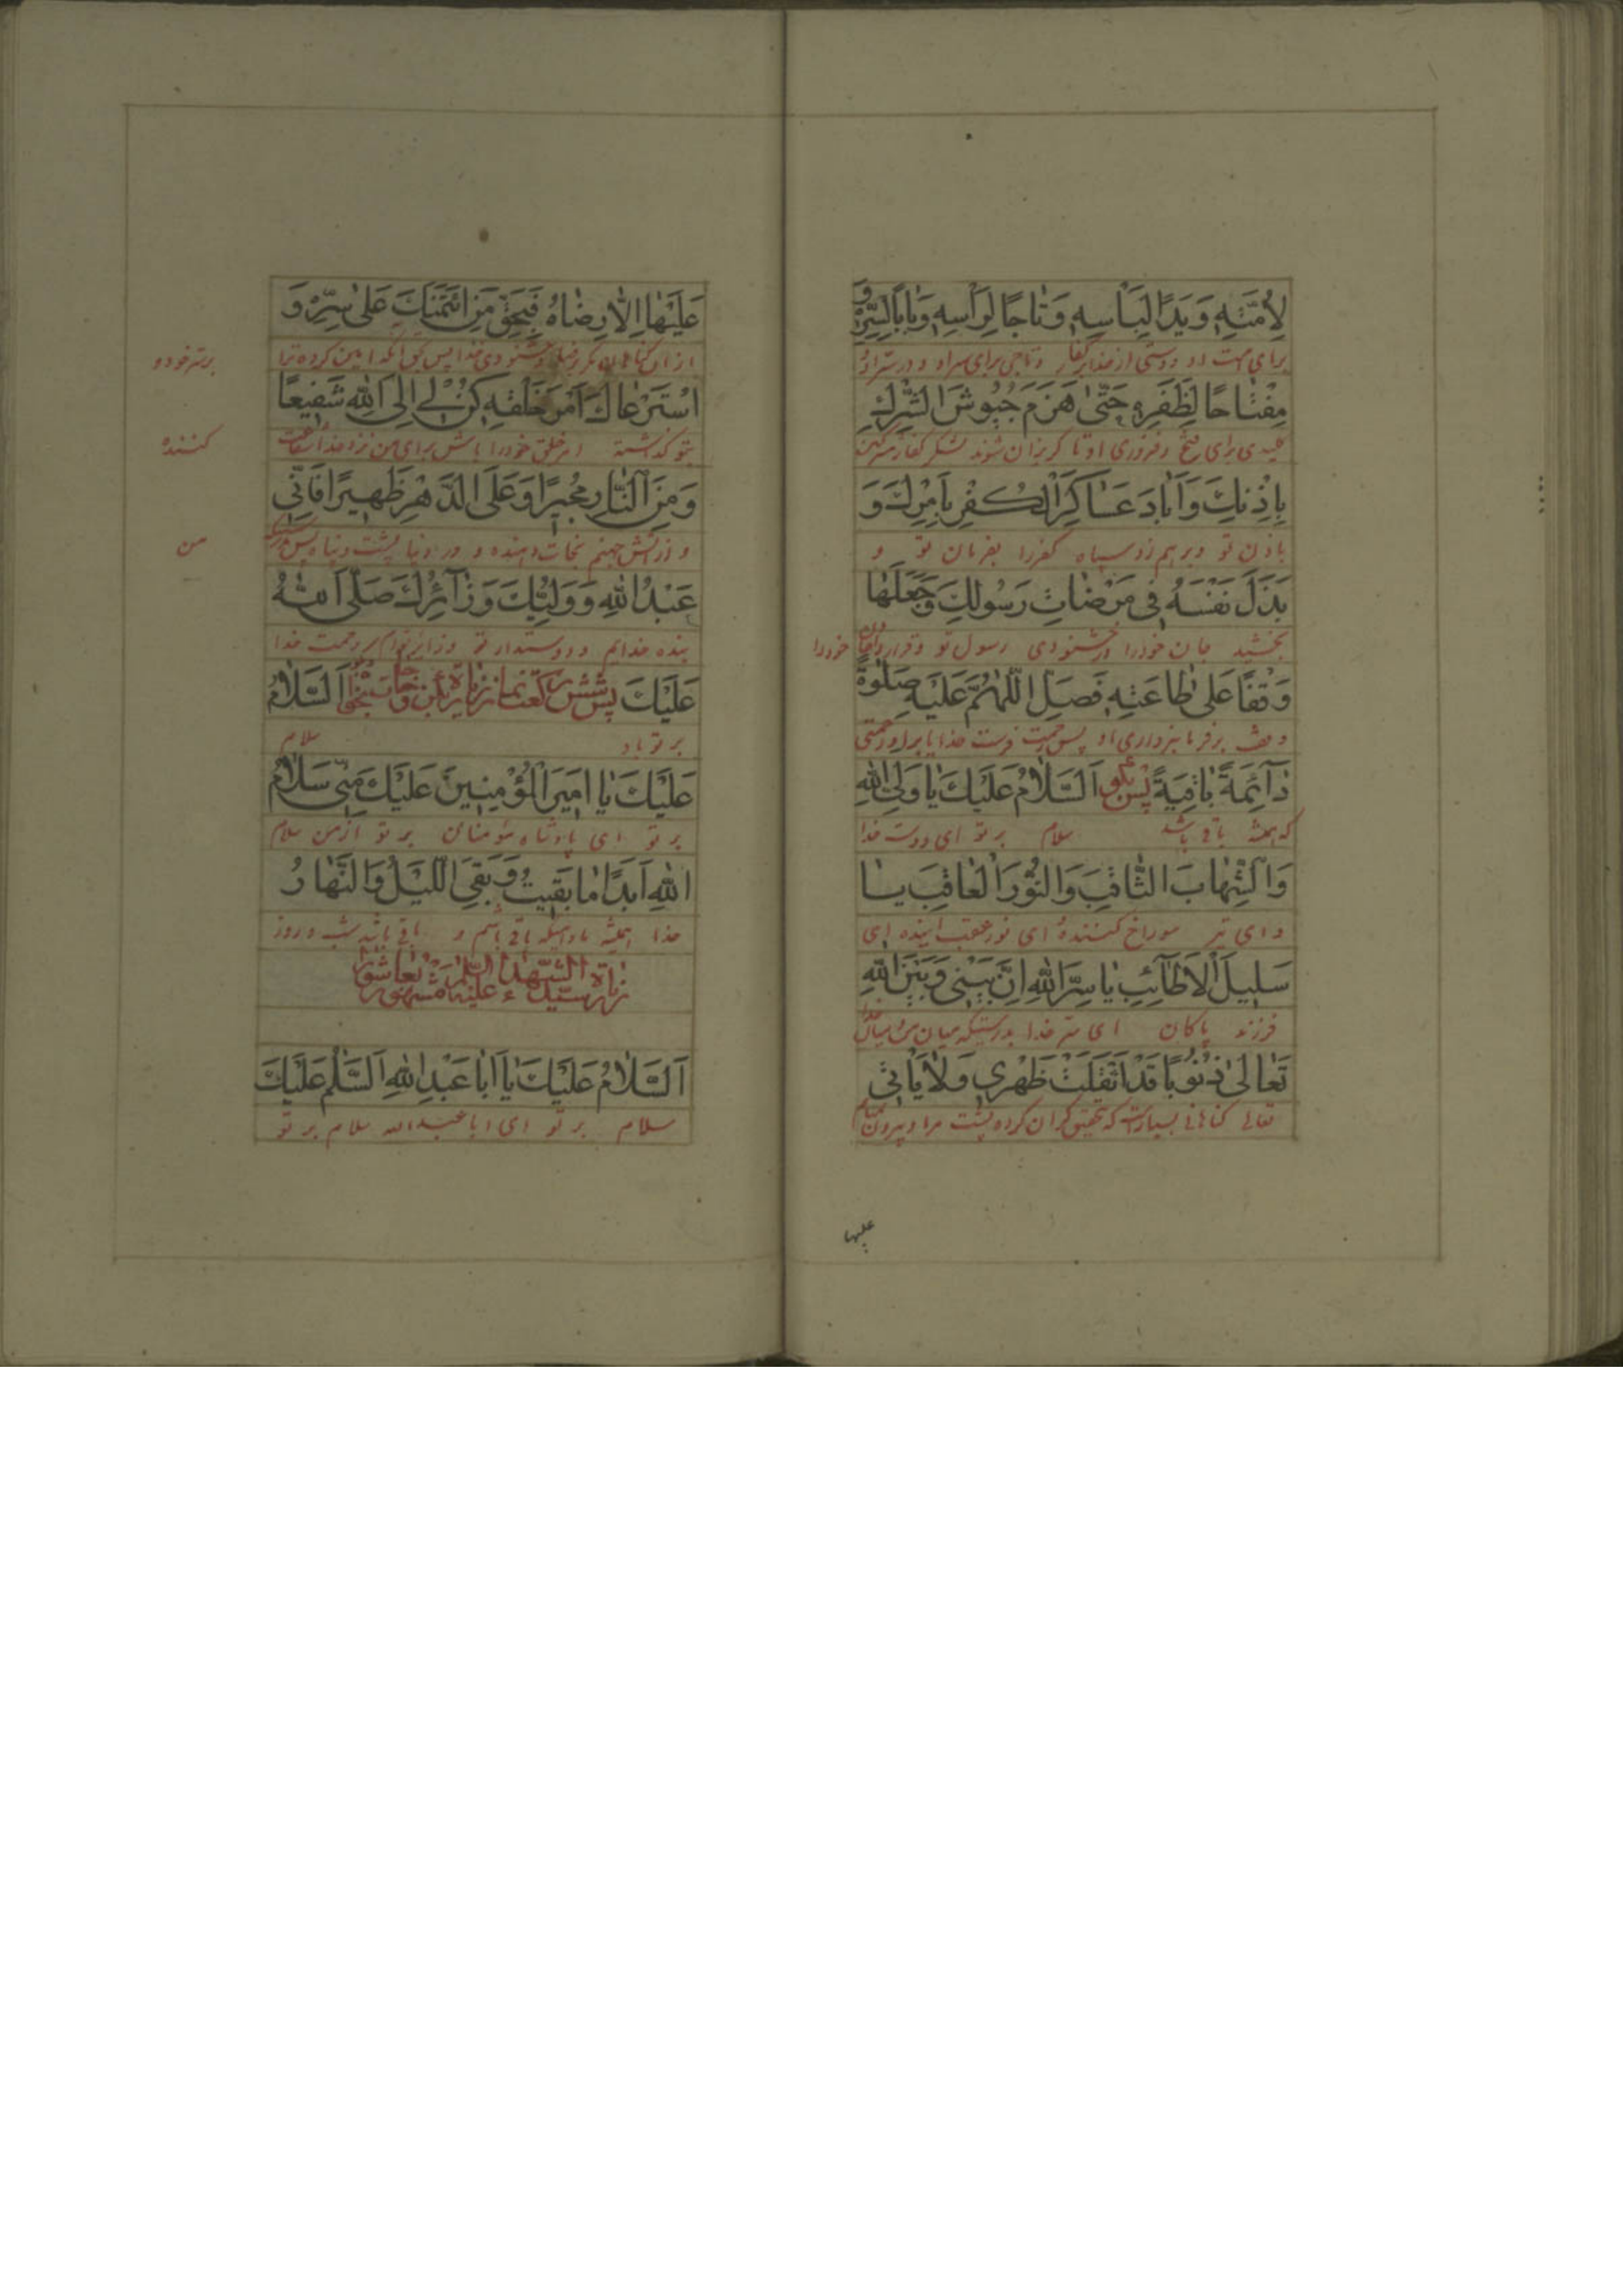 لِاُمَّتِهِ وَيَدًا لِبَأْسِهِ وَتَاجًا لِرَأْسِهِ وَبَابًا لِسِرِّهِ وَ
برای امت او و دستی از عذاب کفار و تاجی برای سر او و در ستر او و
مِفْتَاحًا لِظَفَرِهِ حَتّٰى هَزَمَ جُيُوشَ الشِّرْكِ
کلیدی برای فتح و فروزی او تا کریزان شوند لشکر کفار مشرکین
بِاِذْنِكَ وَاَبَادَ عَسَاكِرَ الْكُفْرِ بِاَمْرِكَ وَ
باذن تو و برهم زد سپاه کفر را بفرمان تو و
بَذَلَ نَفْسَهُ فِى مَرْضَاتِ رَسُولِكَ وَجَعَلَهَا
بخشید جان خود را در خشنودی رسول تو و قرار داد جان خود را
وَقْفًا عَلٰى طَاعَتِهِ فَصَلِّ اللّٰهُمَّ عَلَيْهِ صَلٰوةً
وقف بر فرمانبرداری او پس رحمت فرست خدایا بر او رحمتی
دَآئِمَةً بَاقِيَةً پس بگو اَلسَّلَامُ عَلَيْكَ يَا وَلِىَّ اللهِ
که همیشه باقی باشد سلام بر تو ای دوست خدا
وَالشِّهَابَ الثَّاقِبَ وَالنُّورَ الْعَاقِبَ يَا
و ای تیر سوراخ کننده ای نور عقب آینده ای
سَلِيلَ الْاَطَآئِبِ يَا سِرَّ اللهِ اِنَّ بَيْنِى وَبَيْنَ اللهِ
فرزند پاکان ای ستر خدا بدرستیکه میان من و میان خدا
تَعَالٰى ذُنُوبًا قَدْ اَثْقَلَتْ ظَهْرِى وَلَا يَأْتِى
تعالی کناهانی بسیار است که تحقیق کران کرده پشت مرا و بیرون
علیها
عَلَيْهَا اِلَّا رِضَاهُ فَبِحَقِّ مَنِ ائْتَمَنَكَ عَلٰى سِرِّهِ وَ
از آن کناهان مکر رضا و خشنودی خدا پس بحق آنکه امین کرده ترا بر ستر خود و
اسْتَرْعَاكَ اَمْرَ خَلْقِهِ كُنْ لِى اِلَى اللهِ شَفِيعًا
بتو کذاشته امر خلق خود را باش برای من نزد خدا شفاعت کننده
وَمِنَ النَّارِ مُجِيرًا وَعَلَى الدَّهْرِ ظَهِيرًا فَاِنِّى
و از آتش جهنم نجات دهنده و در دنیا پشت و پناه پس بدرستیکه من
عَبْدُ اللهِ وَوَلِيُّكَ وَزَآئِرُكَ صَلَّى اللهُ
بنده خدایم و دوستدار تو و زایر توام رحمت خدا
عَلَيْكَ پس شش رکعت نماز زیارة بکن و جانب نجف اَلسَّلَامُ
بر تو باد سلام
عَلَيْكَ يَا اَمِيرَ الْمُؤْمِنِينَ عَلَيْكَ مِنِّى سَلَامُ
بر تو ای پادشاه مؤمنان بر تو از من سلام
اللهِ اَبَدًا مَا بَقِيتُ وَبَقِىَ اللَّيْلُ وَالنَّهَارُ
خدا همیشه مادامیکه باقی باشم و باقی باشد شب و روز
زیارة سید الشهدا علیه السلام مشهور بعاشورا
اَلسَّلَامُ عَلَيْكَ يَا اَبَا عَبْدِ اللهِ اَلسَّلٰمُ عَلَيْكَ
سلام بر تو ای ابا عبد الله سلام بر تو